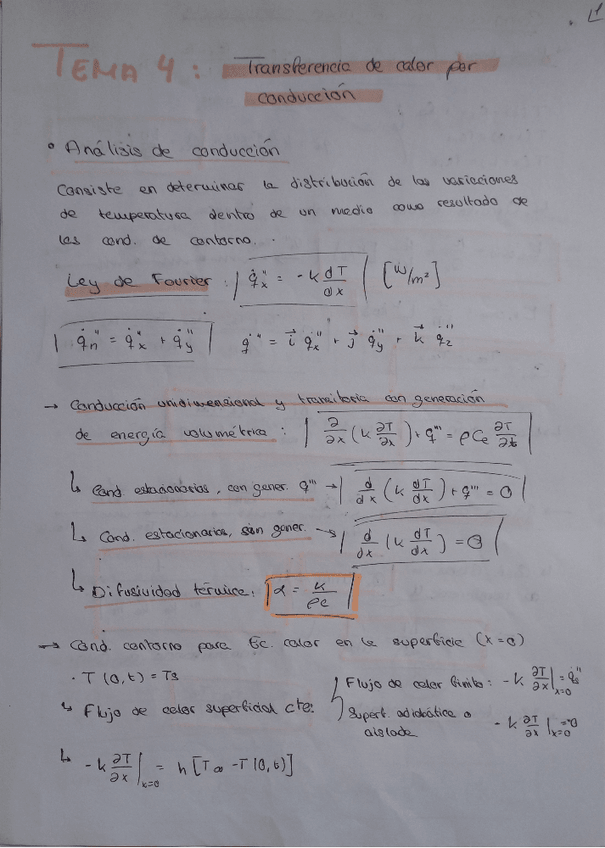 1
TEMA 4: Transferencia de calor por
conducción
• Análisis de conducción
Consiste en determinar la distribución de las variaciones
de temperatura dentro de un medio como resultado de
las cond. de contorno.
Ley de Fourier: q̇''ₓ = -k dT/dx [W/m²]
q̇''ₙ = q̇''ₓ + q̇''ᵧ q̇'' = i⃗ q̇''ₓ + j⃗ q̇''ᵧ + k⃗ q̇''_z
→ Conducción unidimensional y transitoria con generación
de energía volumétrica: ∂/∂x (k ∂T/∂x) + q''' = ρCe ∂T/∂t
↳ Cond. estacionarias, con gener. q''' → d/dx (k dT/dx) + q''' = 0
↳ Cond. estacionarias, sin gener. → d/dx (k dT/dx) = 0
↳ Difusividad térmica: α = k/ρc
→ Cond. contorno para Ec. calor en la superficie (x=0)
· T(0,t) = Ts
↳ Flujo de calor superficial cte:
Flujo de calor finito: -k ∂T/∂x |x=0 = q̇''s
Superf. adiabática o
aislada -k ∂T/∂x |x=0 = 0
↳ -k ∂T/∂x |x=0 = h [T∞ - T(0,t)]